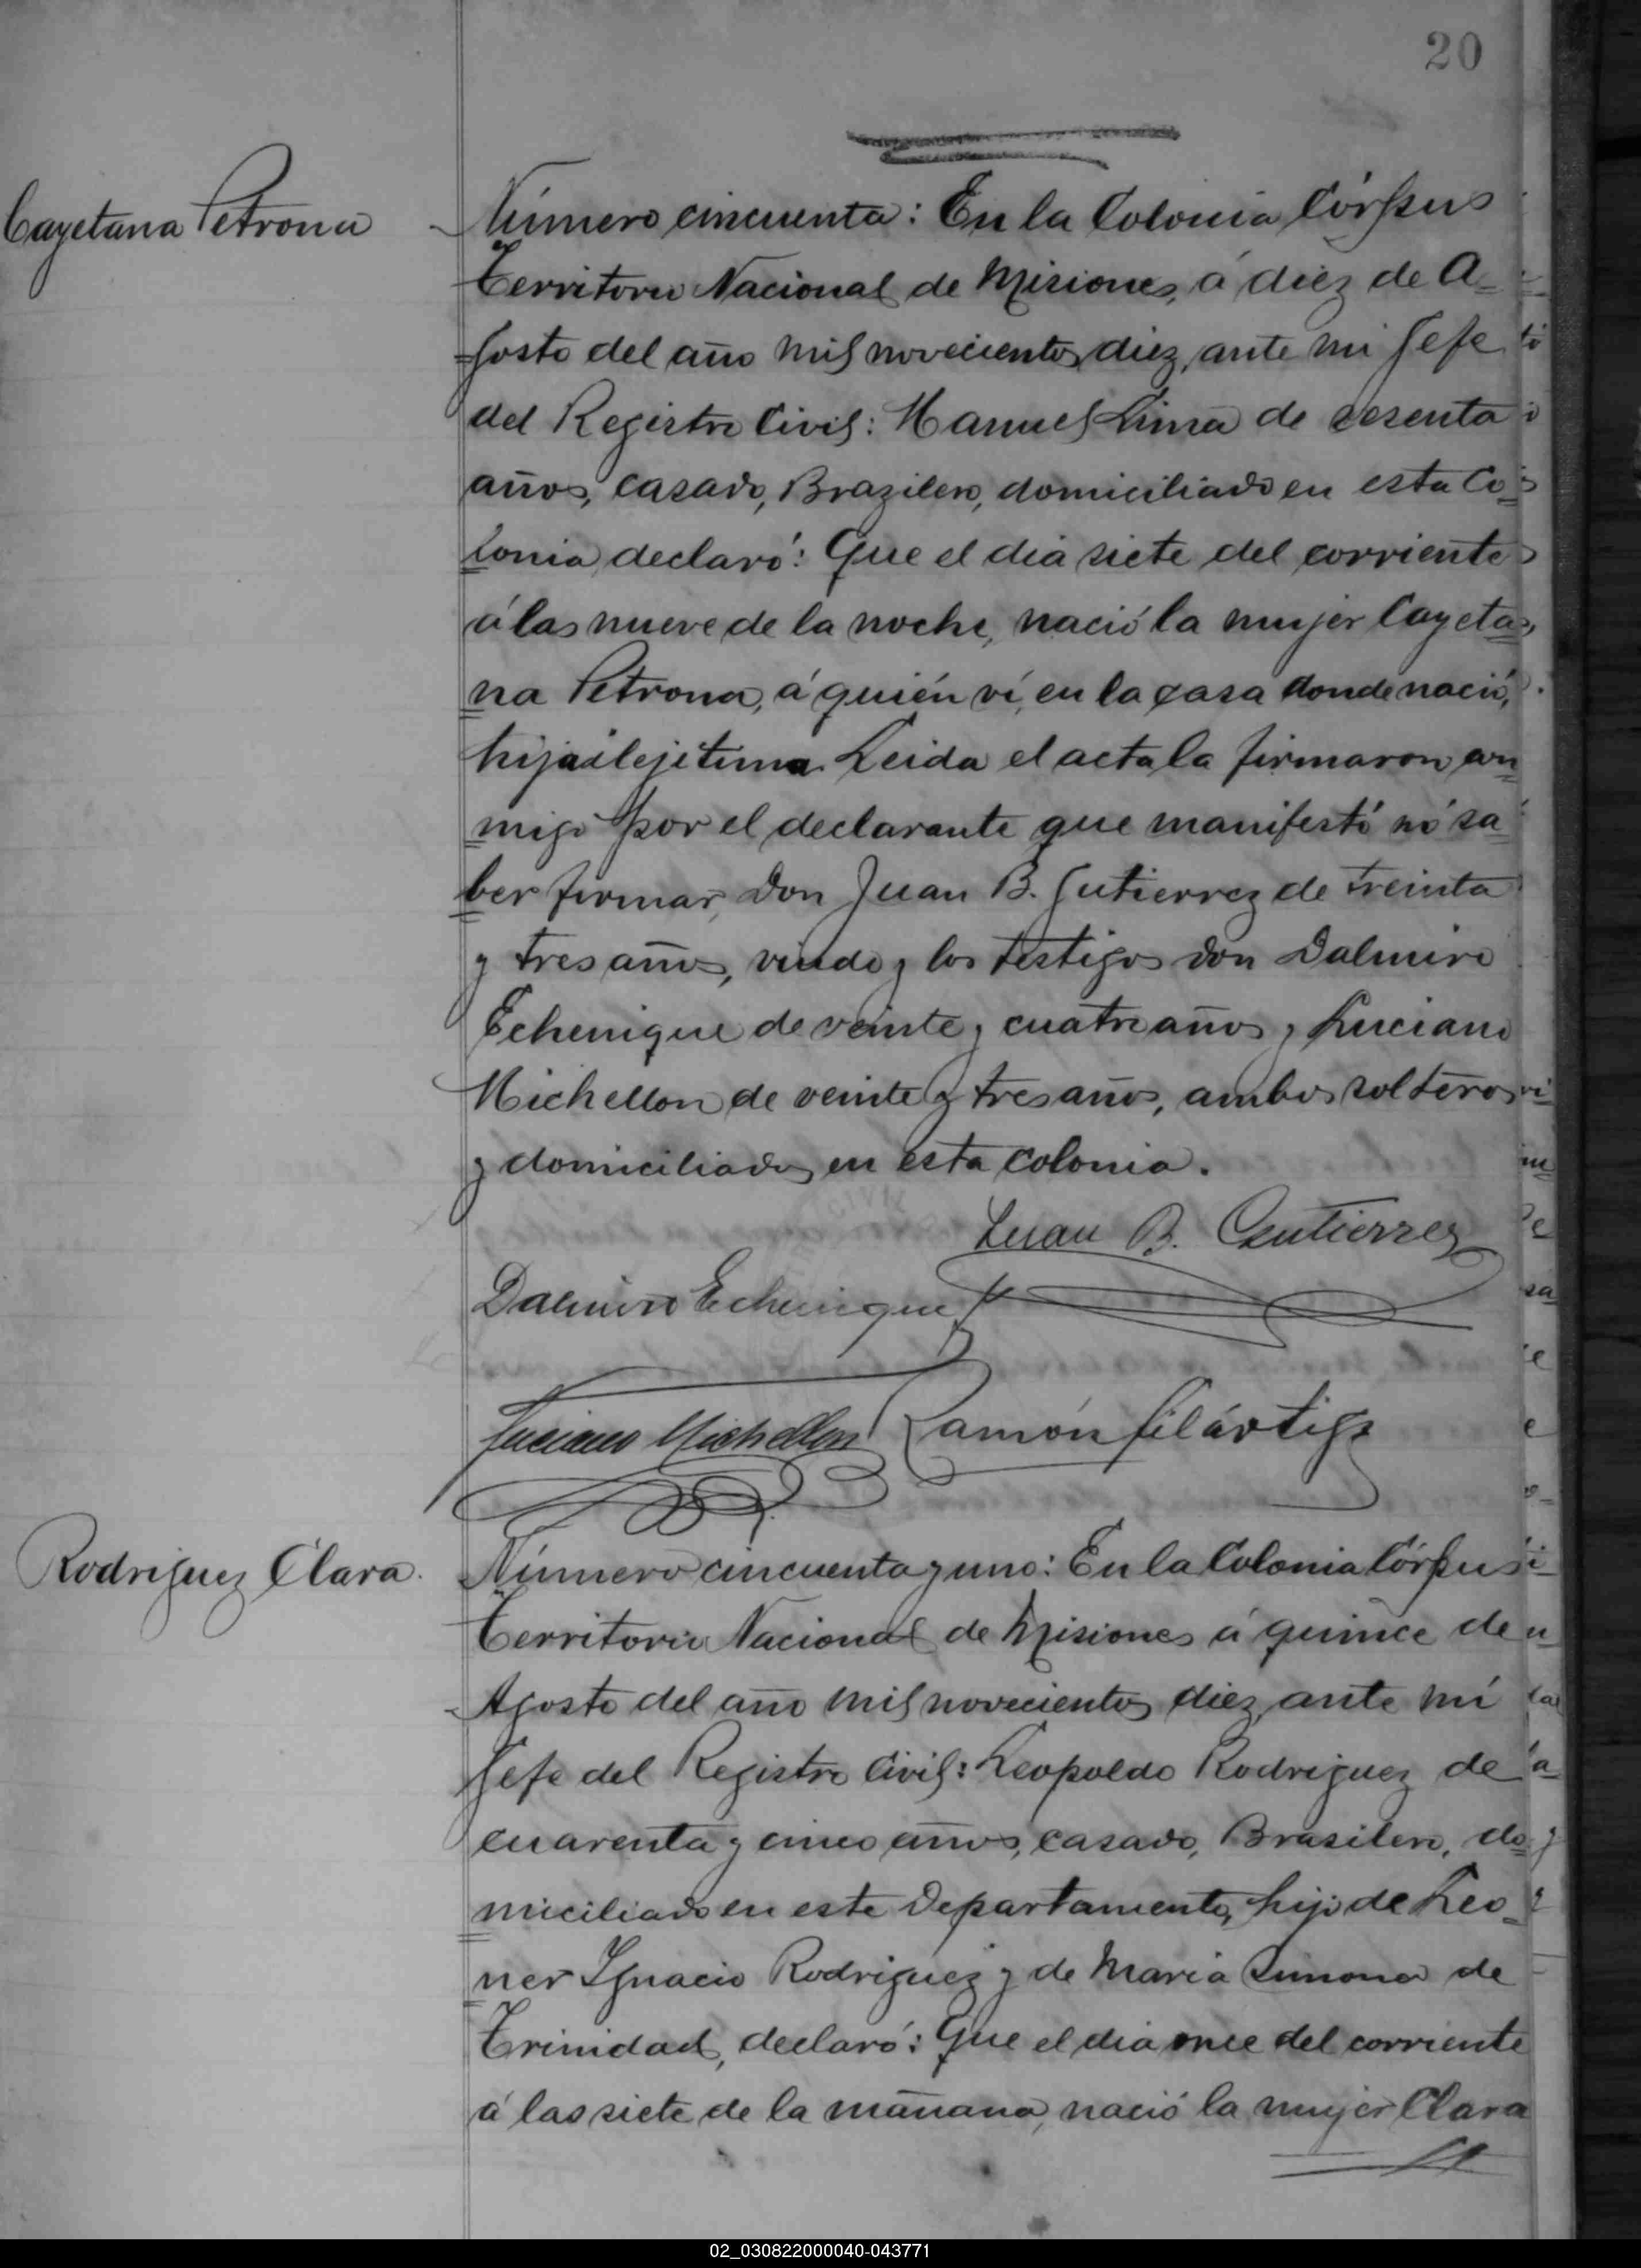 20
Cayetana Petrona
Número cincuenta: En la Colonia Córpus
Territorio Nacional de Misiones, á diez de A-
gosto del año mil novecientos diez, ante mi Jefe
del Registro Civil: Manuel Lima de sesenta
años, casado, Brazilero, domiciliado en esta Co=
lonia, declaró: Que el dia siete del corriente
á las nueve de la noche, nació la mujer Cayeta=
na Petrona, á quién ví, en la casa donde nació,
hija ilejitima. Leida el acta la firmaron con
migo por el declarante que manifestó nó sa
ber firmar, Don Juan B. Gutierrez de treinta
y tres años, viudo y los testigos don Dalmiro
Echenique de veinte y cuatro años y Luciano
Michellon de veinte y tres años, ambos solteros
y domiciliados en esta colonia.
Juan B. Gutierrez
Dalmiro Echenique
Luciano Michellon Ramón Filártiga
Rodriguez Clara.
Número cincuenta y uno: En la Colonia Córpus
Territorio Nacional de Misiones á quince de
Agosto del año mil novecientos diez, ante mí
Jefe del Registro Civil: Leopoldo Rodriguez de
cuarenta y cinco años, casado, Brasilero, do=
miciliado en este Departamento, hijo de Leo=
ner Ignacio Rodriguez y de Maria Simona de
Trinidad, declaró: Que el dia once del corriente
á las siete de la mañana, nació la mujer Clara
02_030822000040-043771